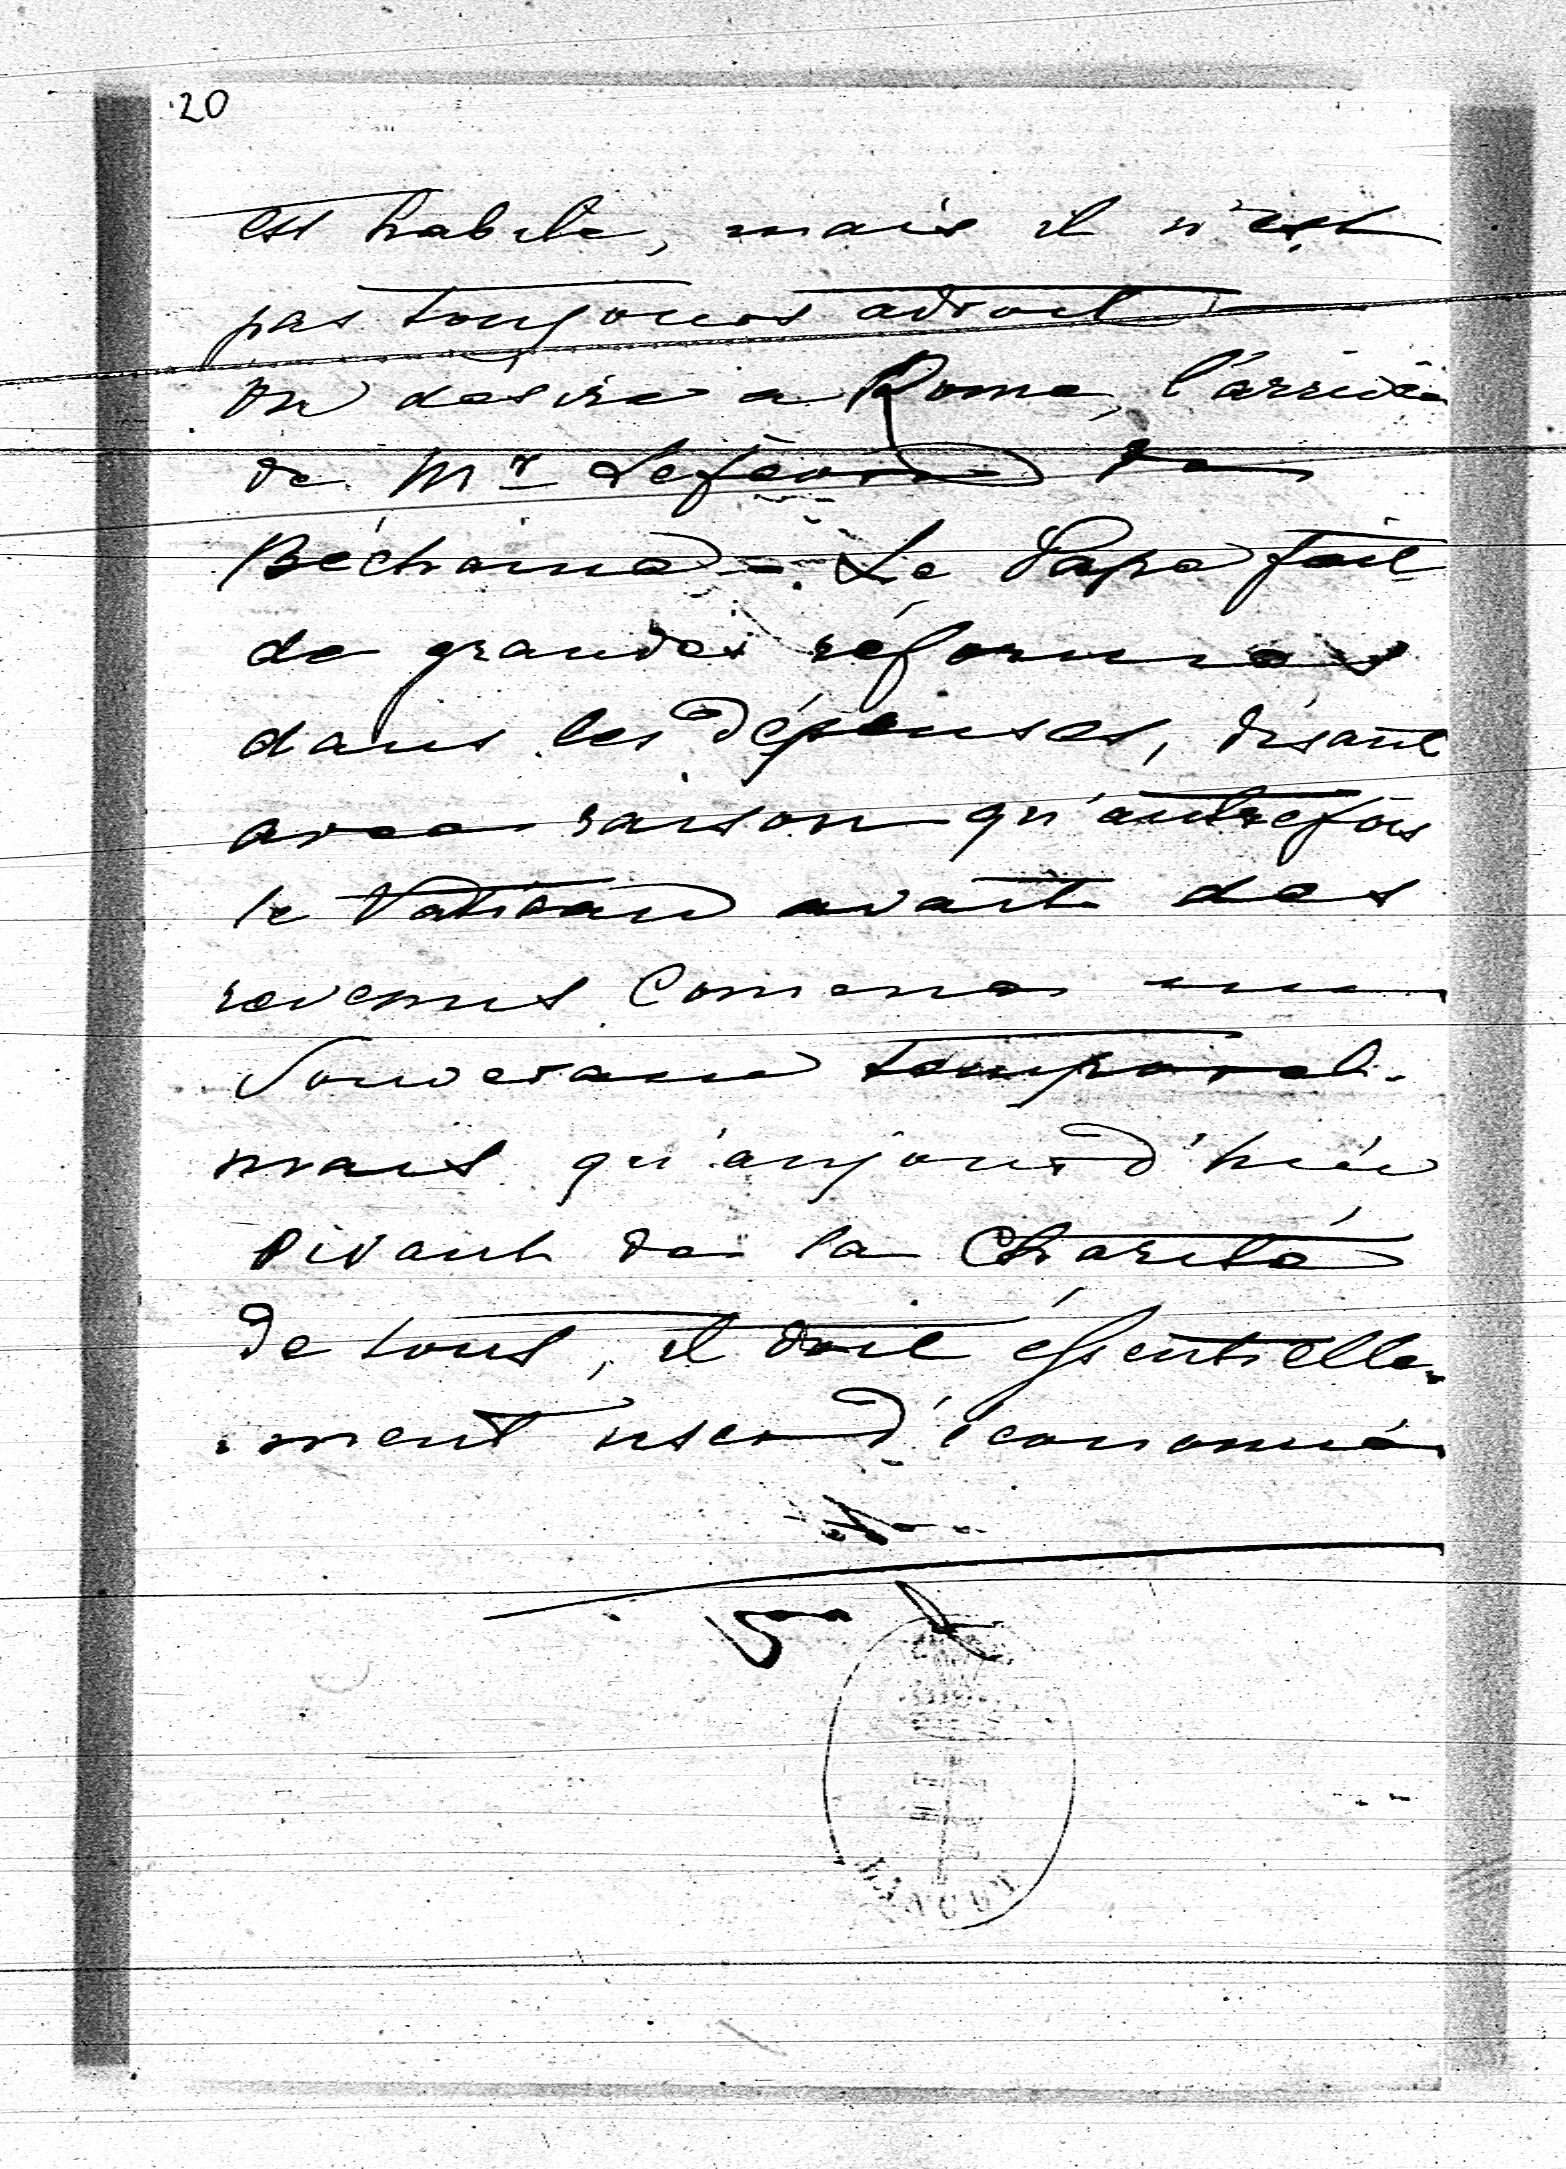 20
est habile, mais il n'est
pas toujours adroit
on désire a Rome, l'arrivée
de Mr Lefèvre de
Béchaine - Le Pape fait
de grandes réformes
dans les dépenses, disant
avec raison qu'autrefois
le Vatican avait des
revenus Comme un
Souverain temporel.
mais qu'aujourd'hui
vivant de la Charité
de tous, il doit éssentielle-
-ment user d'économie